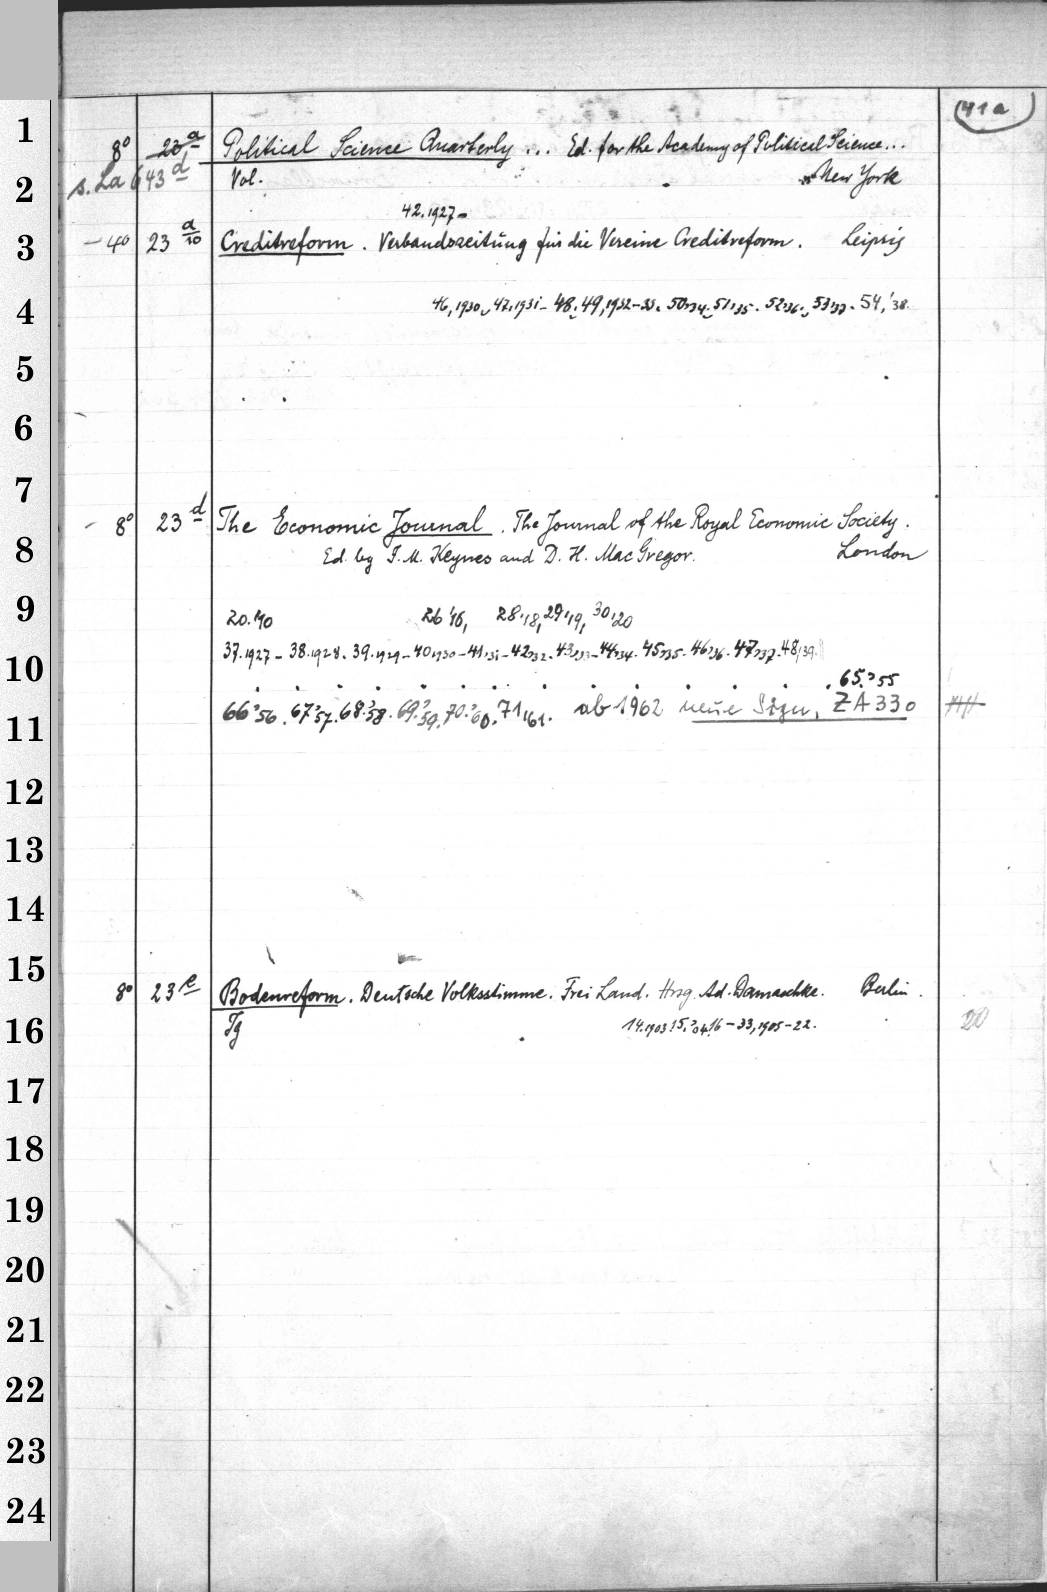 41a
1
8° 23a Political Science Quarterly ... Ed. for the Academy of Political Science...
2
s. La 643d Vol. New York
42.1927-
3
- 4° 23 a/10 Creditreform. Verbandszeitung für die Vereine Creditreform. Leipzig
4
46,1930, 47.1931- 48, 49, 1932-33. 50,'34, 51,'35. 52,'36., 53,'37. 54,'38.
5
6
7
- 8° 23 d The Economic Journal. The Journal of the Royal Economic Society.
8
Ed. by J. M. Keynes and D. H. MacGregor. London
9
20.'10 26'16, 28,'18, 29,'19, 30,'20
10
37.1927- 38.1928. 39.1929-40,1930-41,'31-42,'32-43,'33-44,'34-45,'35-46,'36-47,'37.48,'39.
65,'55
11
66,'56. 67,'57. 68,'58. 69,'59. 70,'60. 71,'61. ab 1962 neue Sign. ZA 330
12
13
14
15
8° 23 e Bodenreform. Deutsche Volksstimme. Frei Land. Hrsg. Ad. Damaschke. Berlin.
16
Jg 14.1903. 15,'04. 16-33,1905-22. 20
17
18
19
20
21
22
23
24